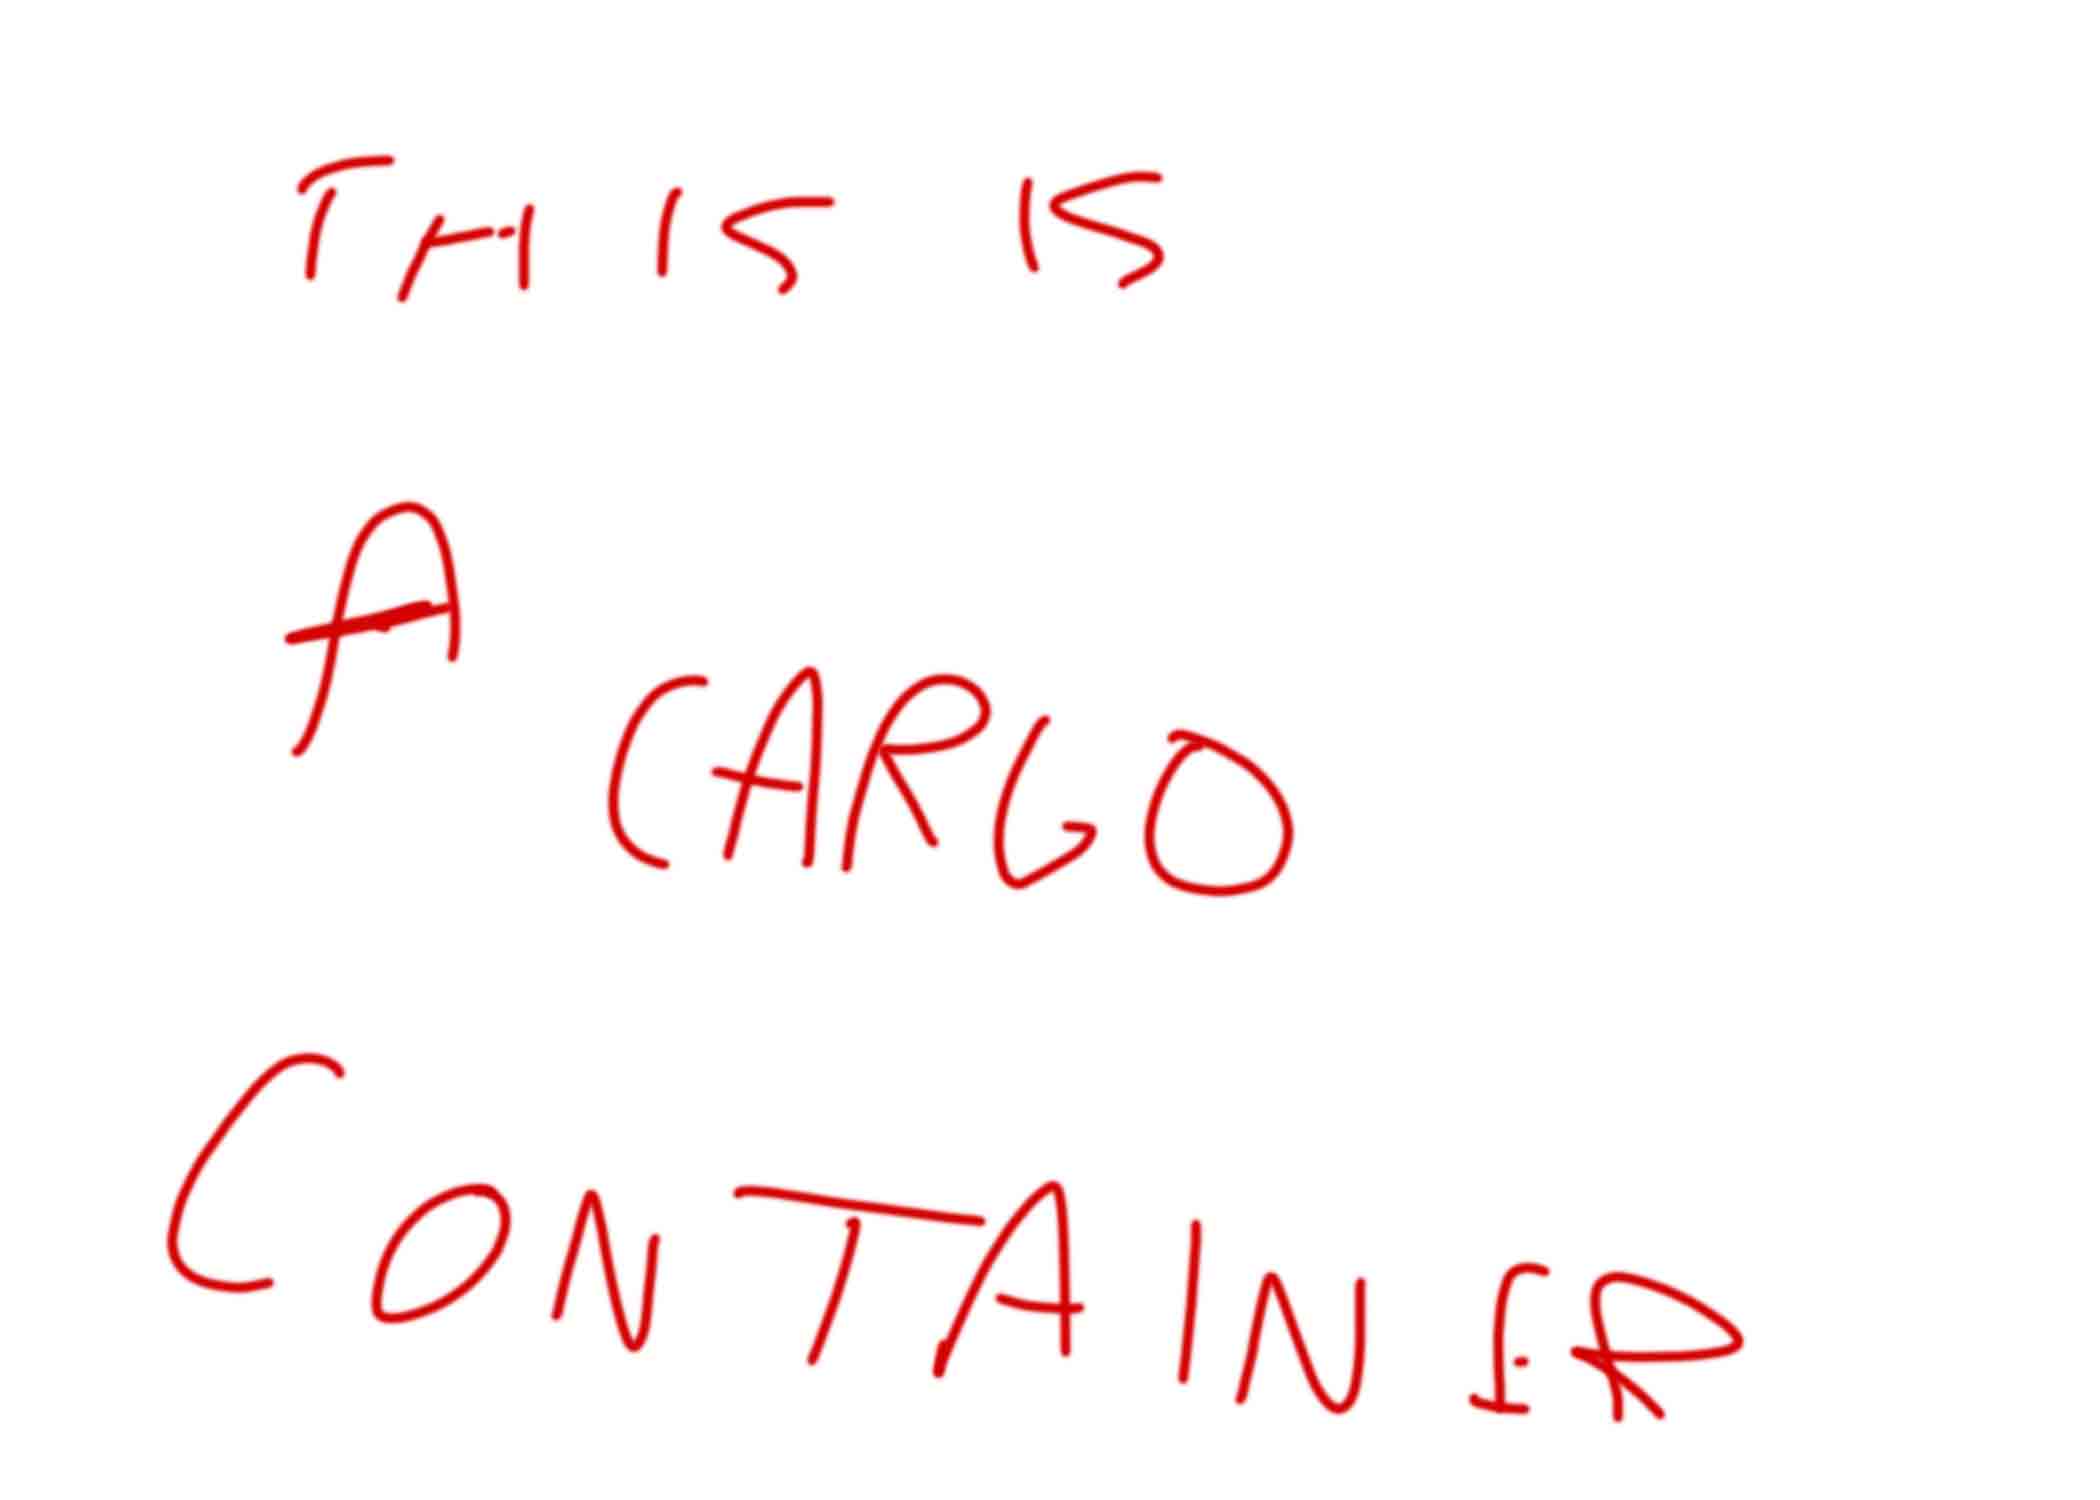 THIS IS
A CARGO
CONTAINER